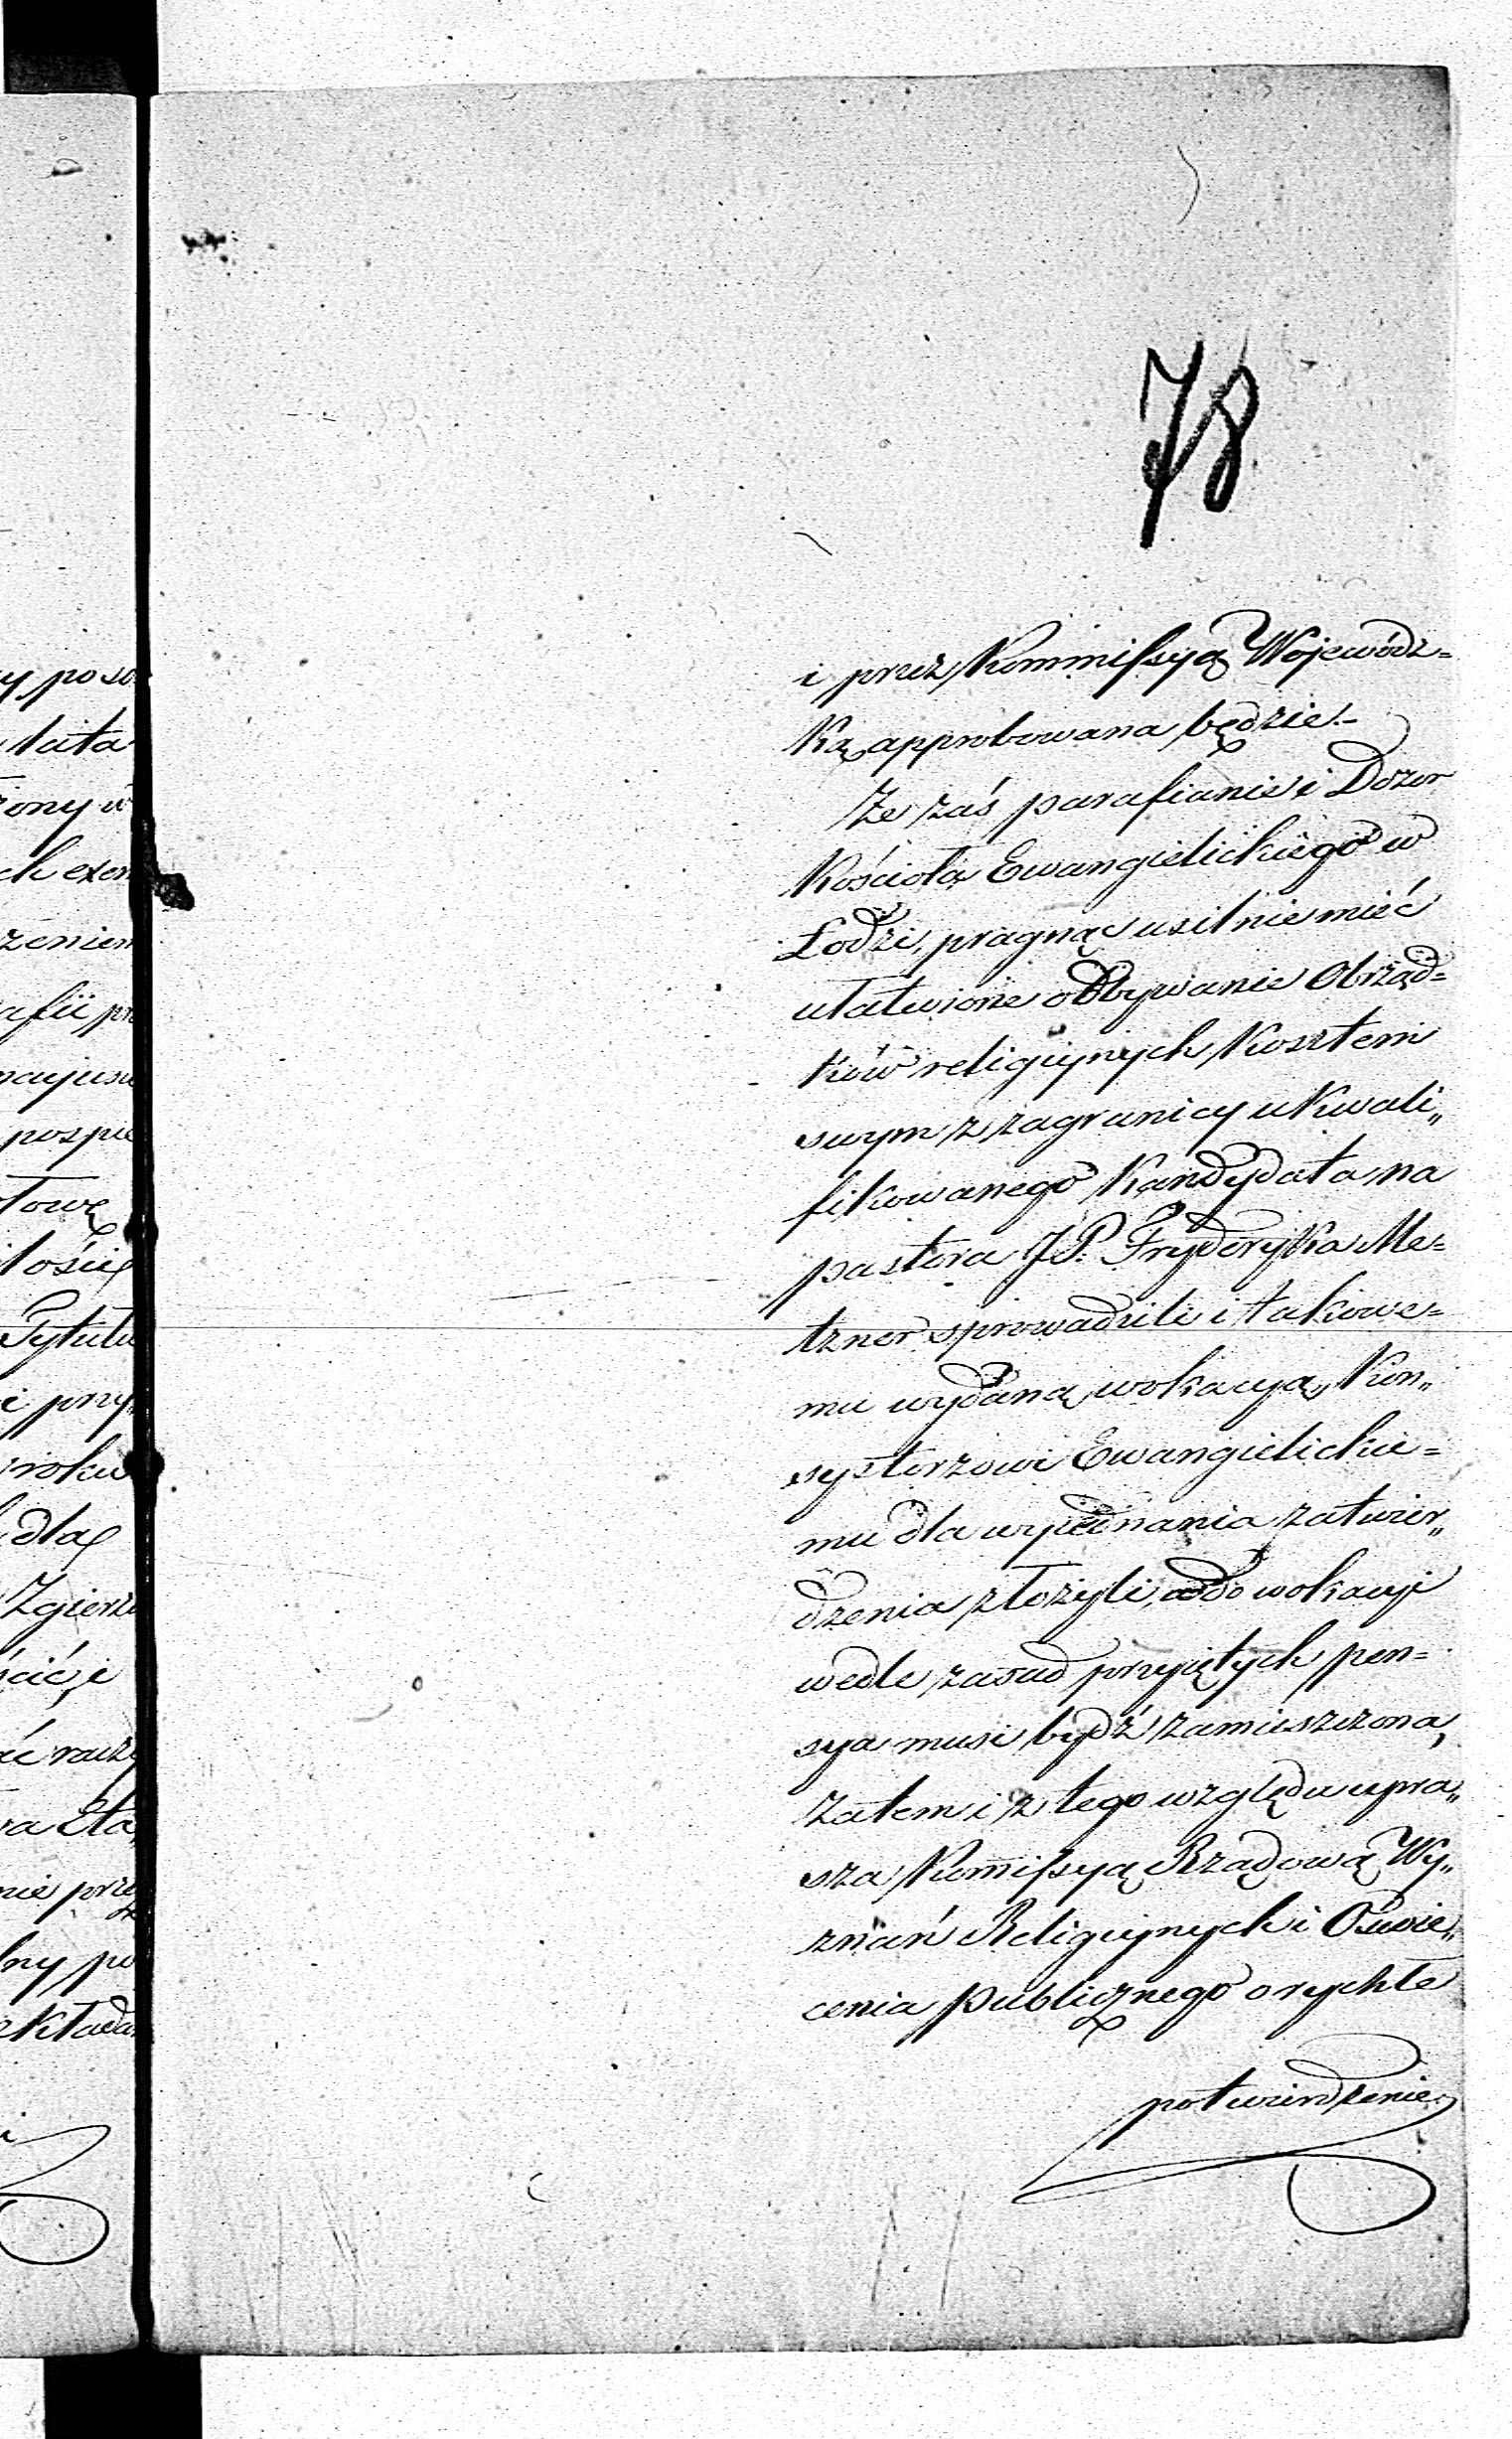 78
i przez Kommissyą Wojewódz=
ką approbowana będzie.-
Że zaś parafianie i Dozor
Kościoła Ewangielickiego w
Łodzi, pragnąc usilnie mieć
ułatwione odbywanie Obrząd=
ków religijnych kosztem
swym z zagranicy ukwali„
fikowanego Kandydata na
pastora J.P. Fryderyka Me=
tzner sprowadzili i takowe=
mu wydaną wokacyą, Kon„
systorzowi Ewangielickie=
mu dla wyjednania zatwier„
dzenia złożyli, a do wokacyi
wedle zasad przyjętych pen=
sya musi bydź zamieszczona,
zatem i z tego względu upra„
sza Kommissyą Rządową Wy„
znań Religijnych i Oświe„
cenia publicznego o rychłe
potwierdzenie
y poso
lata
żony w
ch exem
zeniem
afii pr
pospie
łowę
ilości
Tytułu
i przy„
roku
dla
Zgierzu
ścić i
nie prze
lny po